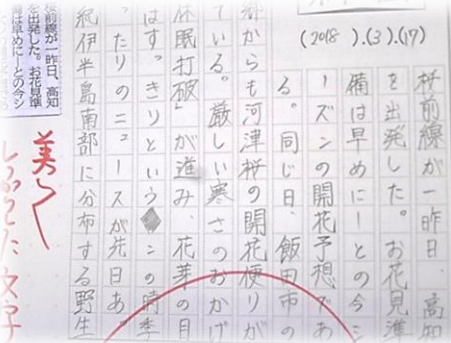 (2018).(3).(17)
桜前線が一昨日、高知
を出発した。お花見準
備は早めに―との今シ
ーズンの開花予想であ
る。同じ日、飯田市の
郷からも河津桜の開花便りが
ている。厳しい寒さのおかげ
休眠打破」が進み、花芽の目
はすっきりという◆この時季
ったりのニュースが先日あ
紀伊半島南部に分布する野生
桜前線が一昨日、高知
を出発した。お花見準
備は早めに―との今シ
美しく
しっかりした文字